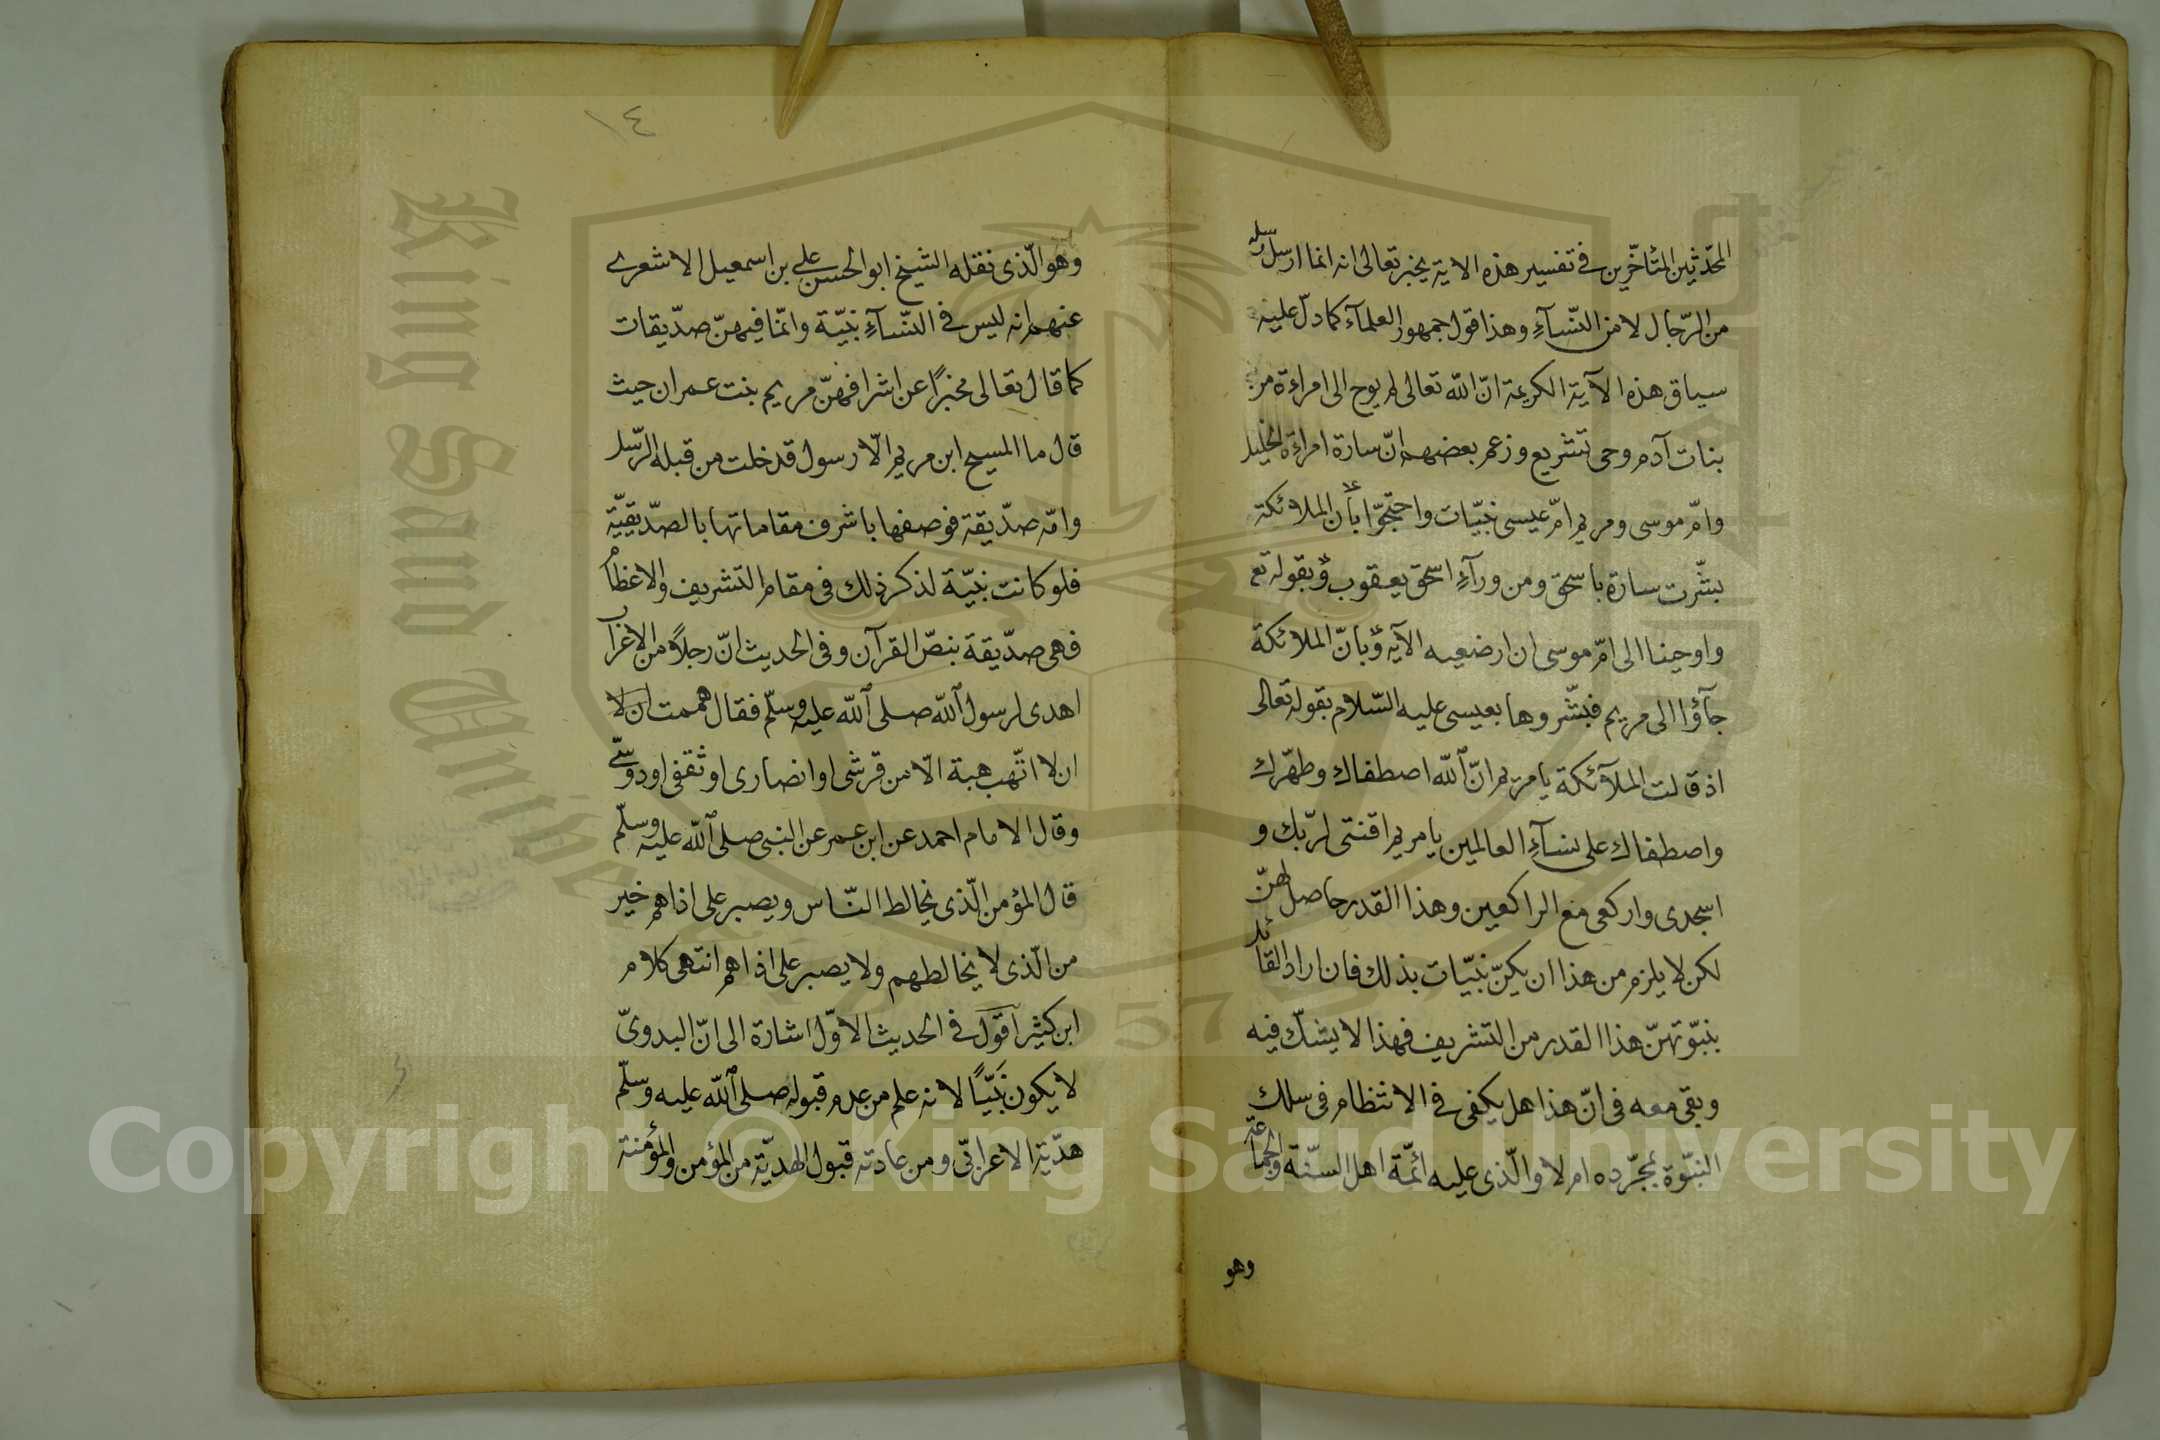 المحدّثين المتأخّرين في تفسير هذه الاية يخبر تعالى انه انما ارسل رسله
من الرّجال لا من النّسآءِ وهذا قول جمهور العلمآء كما دلّ عليه
سياق هذه الآية الكريمة انّ الله تعالى لم يوح الى امراءة من
بنات آدم وحى تشريع وزعم بعضهم انّ سارة امراءة الخليل
وامّ موسى ومريم امّ عيسى نبيّات واحتجّوا بأن الملائكة
بشّرت سارة باسحق ومن ورآءِ اسحق يعقوب وبقوله تع
واوحينا الى امّ موسى ان ارضعيه الآيه وبانّ الملائكة
جآؤا الى مريم فبشّروها بعيسى عليه السّلام بقوله تعالى
اذ قالت الملآئكة يا مريم انّ الله اصطفاك وطهّرك
واصطفاك على نسآءِ العالمين يا مريم اقنتى لربّك و
اسجدى واركعى مع الراكعين وهذا القدر حاصل لهنّ
لكن لا يلزم من هذا ان يكنّ نبيّات بذلك فان اراد القائل
بنبوّتهنّ هذا القدر من التشريف فهذا لا يشكّ فيه
ويبقى معه فى انّ هذا هل يكفى في الانتظام فى سلك
النبّوة بمجّرده ام لا والّذى عليه ائمّة اهل السّنة والجماعة
وهو
١٤
وهو الّذى نقله الشيخ ابو الحسن على بن اسمعيل الاشعرى
عنهم انه ليس في النّسآءِ نبيّة وانمّا فيهنّ صدّيقات
كما قال تعالى مخبرًا عن اشرافهنّ مريم بنت عمران حيث
قال ما المسيح ابن مريم الّا رسول قد خلت من قبله الرّسل
وامّه صدّيقة فوصفها باشرف مقاماتها بالصدّيقيّة
فلو كانت نبيّة لذكر ذلك فى مقام التشريف والاعظام
فهى صدّيقة بنصّ القرآن وفى الحديث انّ رجلاً من الاعراب
اهدى لرسول الله صلى الله عليه وسلّم فقال هممت ان لا
ان لا اتّهب هبة الّا من قرشى او انصارى او ثقفى او دوسّى
وقال الامام احمد عن ابن عمر عن النبى صلى الله عليه وسلّم
قال المؤمن الّذى يخالط النّاس ويصبر على اذاهم خير
من الّذى لا يخالطهم ولا يصبر على اذاهم انتهى كلام
ابن كثير اقول في الحديث الاوّل اشارة الى انّ البدوىّ
لا يكون نَبيّاً لانه علم من عدم قبوله صلى الله عليه وسلّم
هدّية الاعرابّى ومن عادته قبول الهديّة من المؤمن والمؤمنة
King Saud University
1957
Copyright © King Saud University